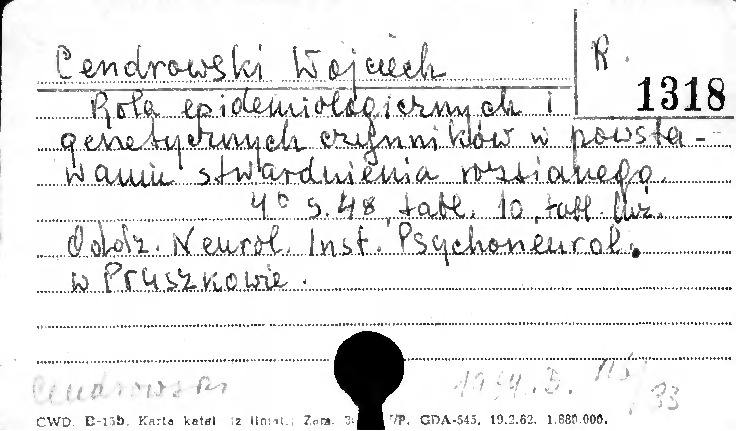 Cendrowski Wojciech
R.
1318
Rola epidemiologicznych i
genetycznych czynników w powsta-
waniu stwardnienia rozsianego.
4° s. 48, tabl. 10, tabl. luź.
Oddz. Neurol. Inst. Psychoneurol.
w Pruszkowie.
Cendrowski
CWD. Karta katal. GDA-545. 19.2.62. 1.880.000.